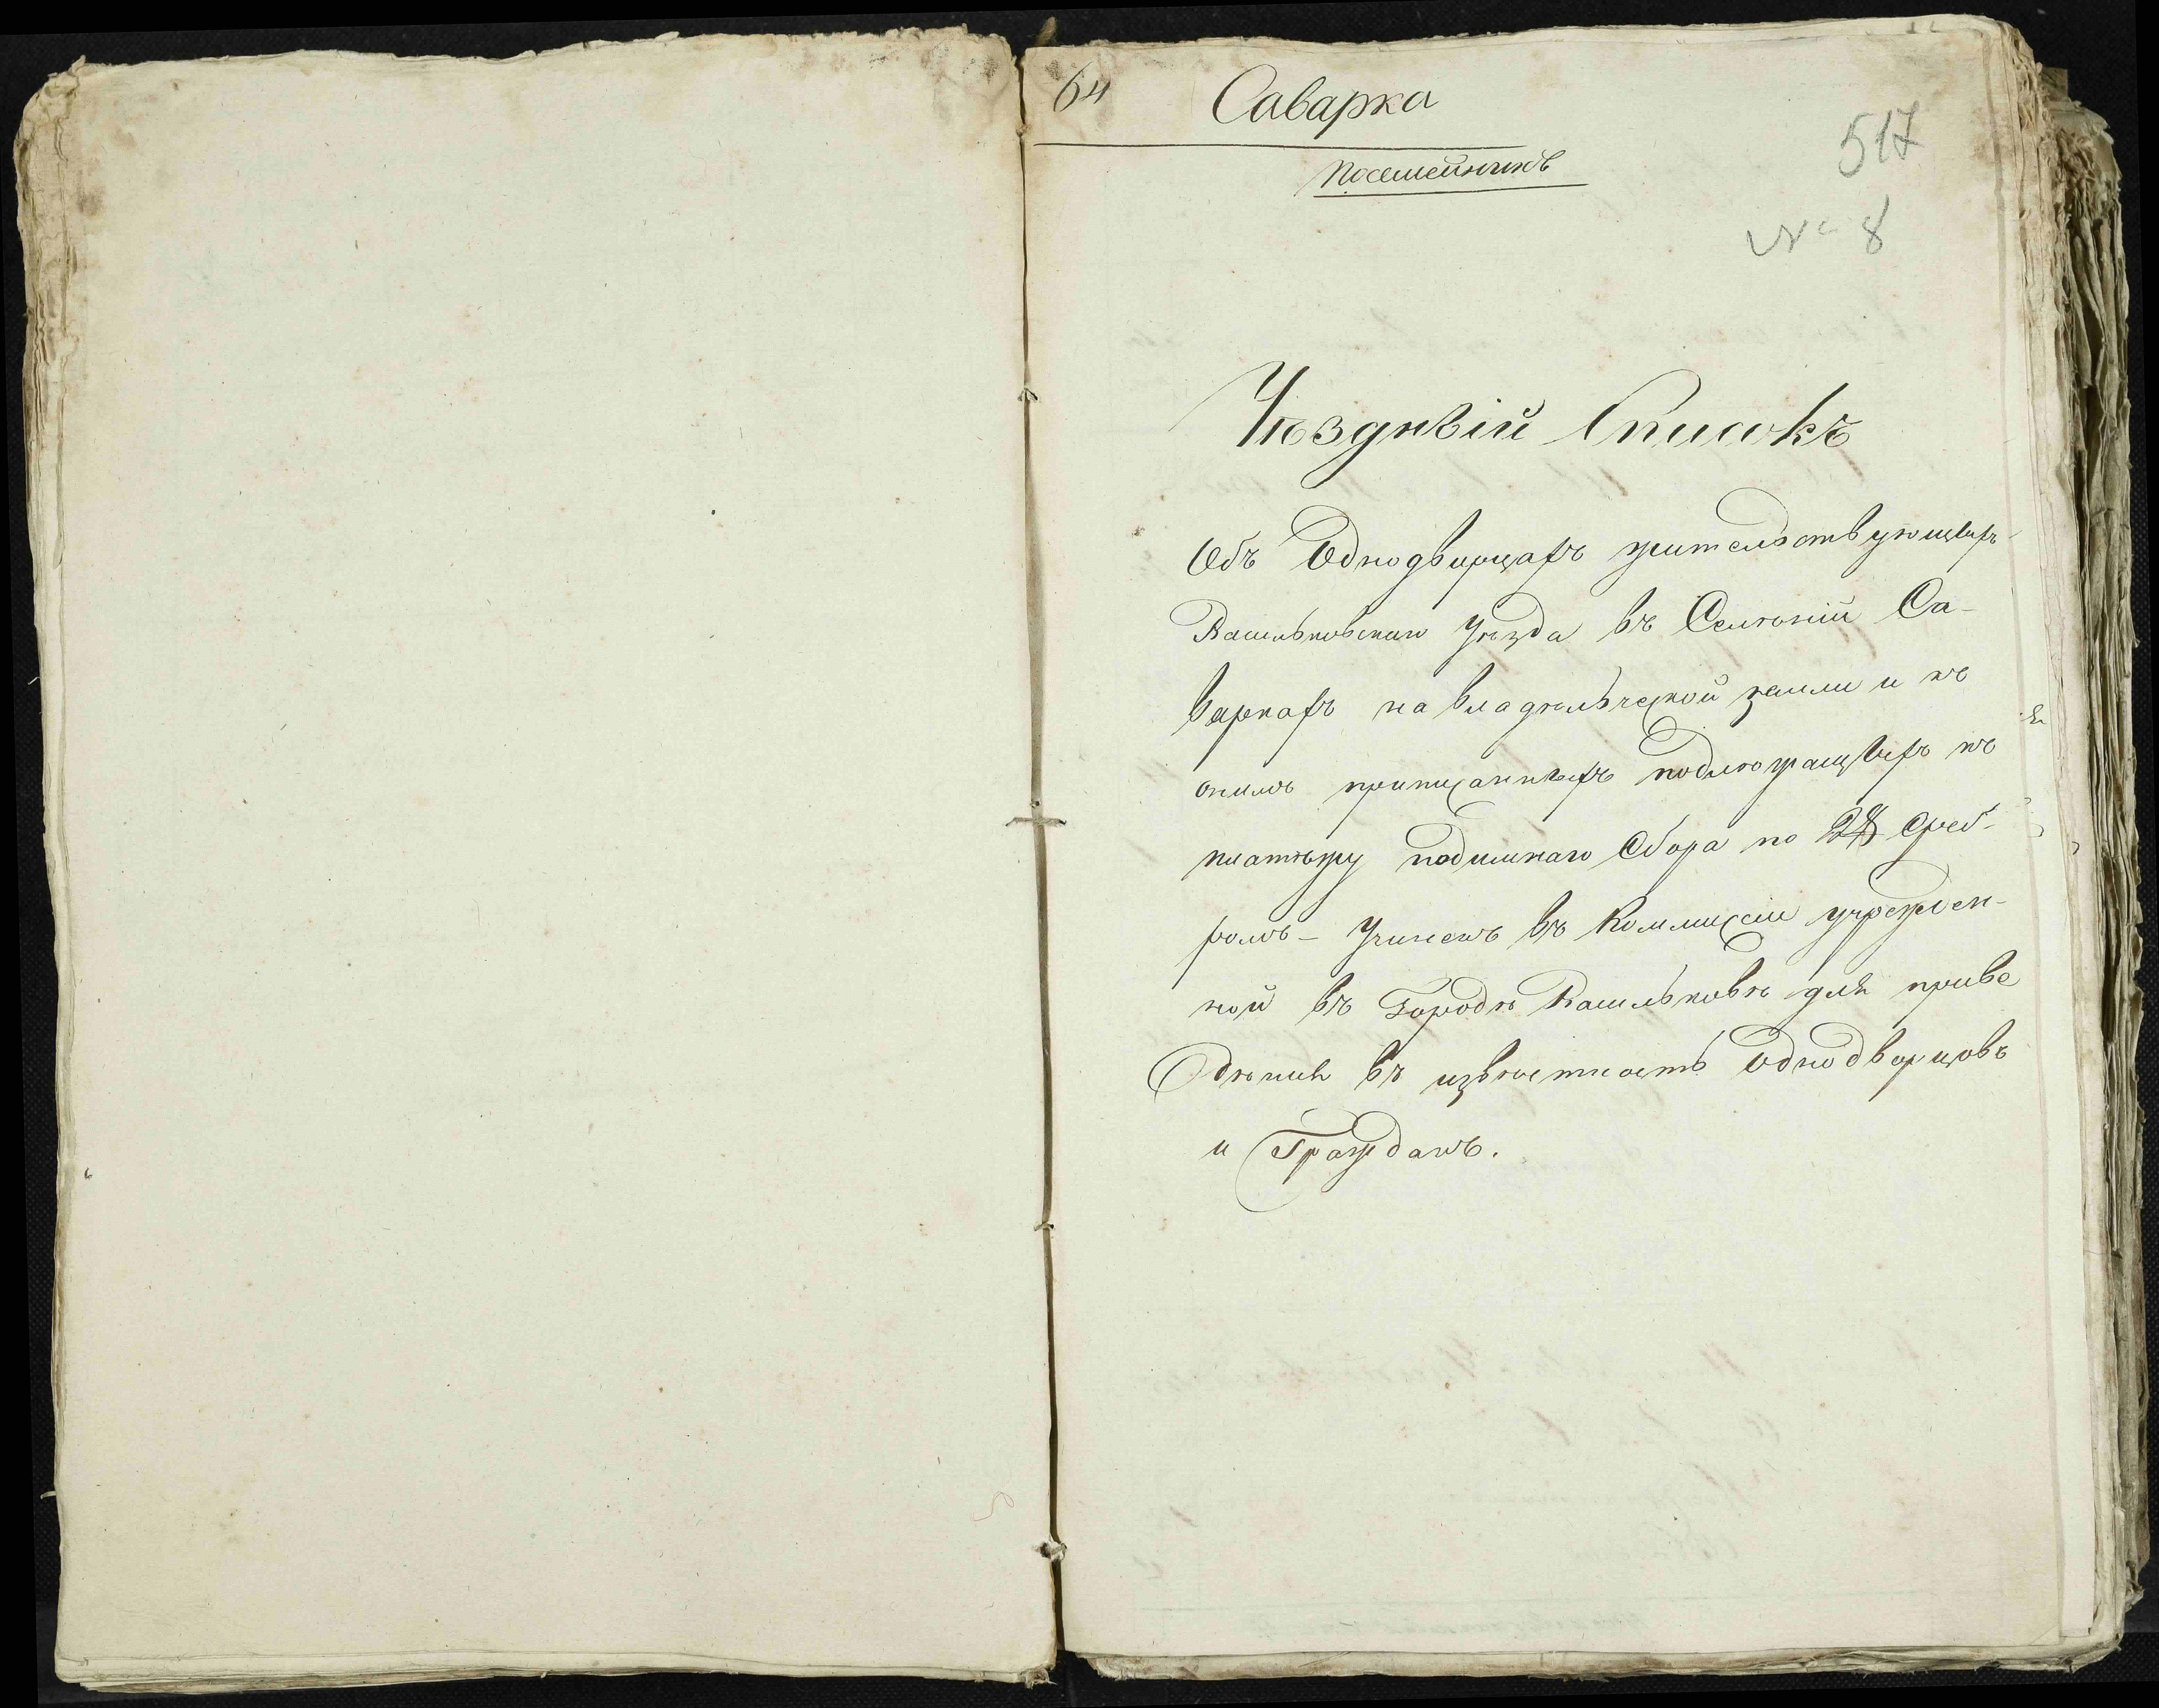 64 Саварка
517
Посемейникъ
№ 8
Уѣздный Списокъ
Объ Однодворцахъ жительствующихъ
Васильковскаго Уѣзда въ Селеніи Са-
варкахъ на владѣльческой земли и къ
онымъ приписанныхъ подлежащихъ къ
платежу подымнаго Сбора по 2й Среб-
ромъ – Учиненъ въ Коммиссіи учрежден-
ной въ Городѣ Васильковѣ для приве
дѣнія въ извѣстность Однодворцовъ
и Гражданъ.